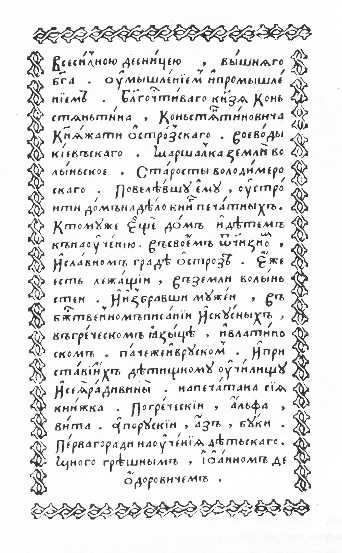 Всеси́лною десни́цею , вы́шняго
бг҃а . оу҆мышле́нїем и҆промышле
нїемъ . Бл҃гочⷭ҇ти́ваго кн҃зя Конь
стянъти́на , Конъстяⷩ҇ти́новича
Кня́жати о҆стро́зскаго . воево́ды
кїевъскаго . Маршалка земли́ во
лы́ньское . Ста́росты володимеро
скаго . Повеле́вшу є҆му̀ , оу҆стро́
ити до́мъ на де́ло кни́г печа́тныхъ .
Ктому́же є҆щѐ до́мъ и҆де́тем
къ нау҆че́нию . въ свое́мъ ѻ҆тчи́зно ,
и҆сла́вномъ гра́де о҆стро́зѣ . є҆́же
єсть лежа́щїи , въ земли волы́нь
стеи . и҆и҆збра́вши му́жеи , въ
бж҃ественомъ писа́нїи и҆ску́сныхъ ,
въ гре́ческомъ ꙗ҆зы́це , и҆влати́нь
скомъ . па́чеже и҆в ру́ском . и҆при
ста́ви и҆хъ де́тищному оу҆чи́лищу
и҆сея҆ра́ди вины̀ . напеча́тана сїѧ
кни́жка . По гре́ческїи , а҆́льфа ,
ви́та . а҆ поруски́и , а҆́зъ , бу́ки .
Пе́рваго ради нау҆че́нїя де́тьскаго .
Мно́го гре́шным , І҆ѡа́нномъ , Ѳе
ѻ҆́доровичем .